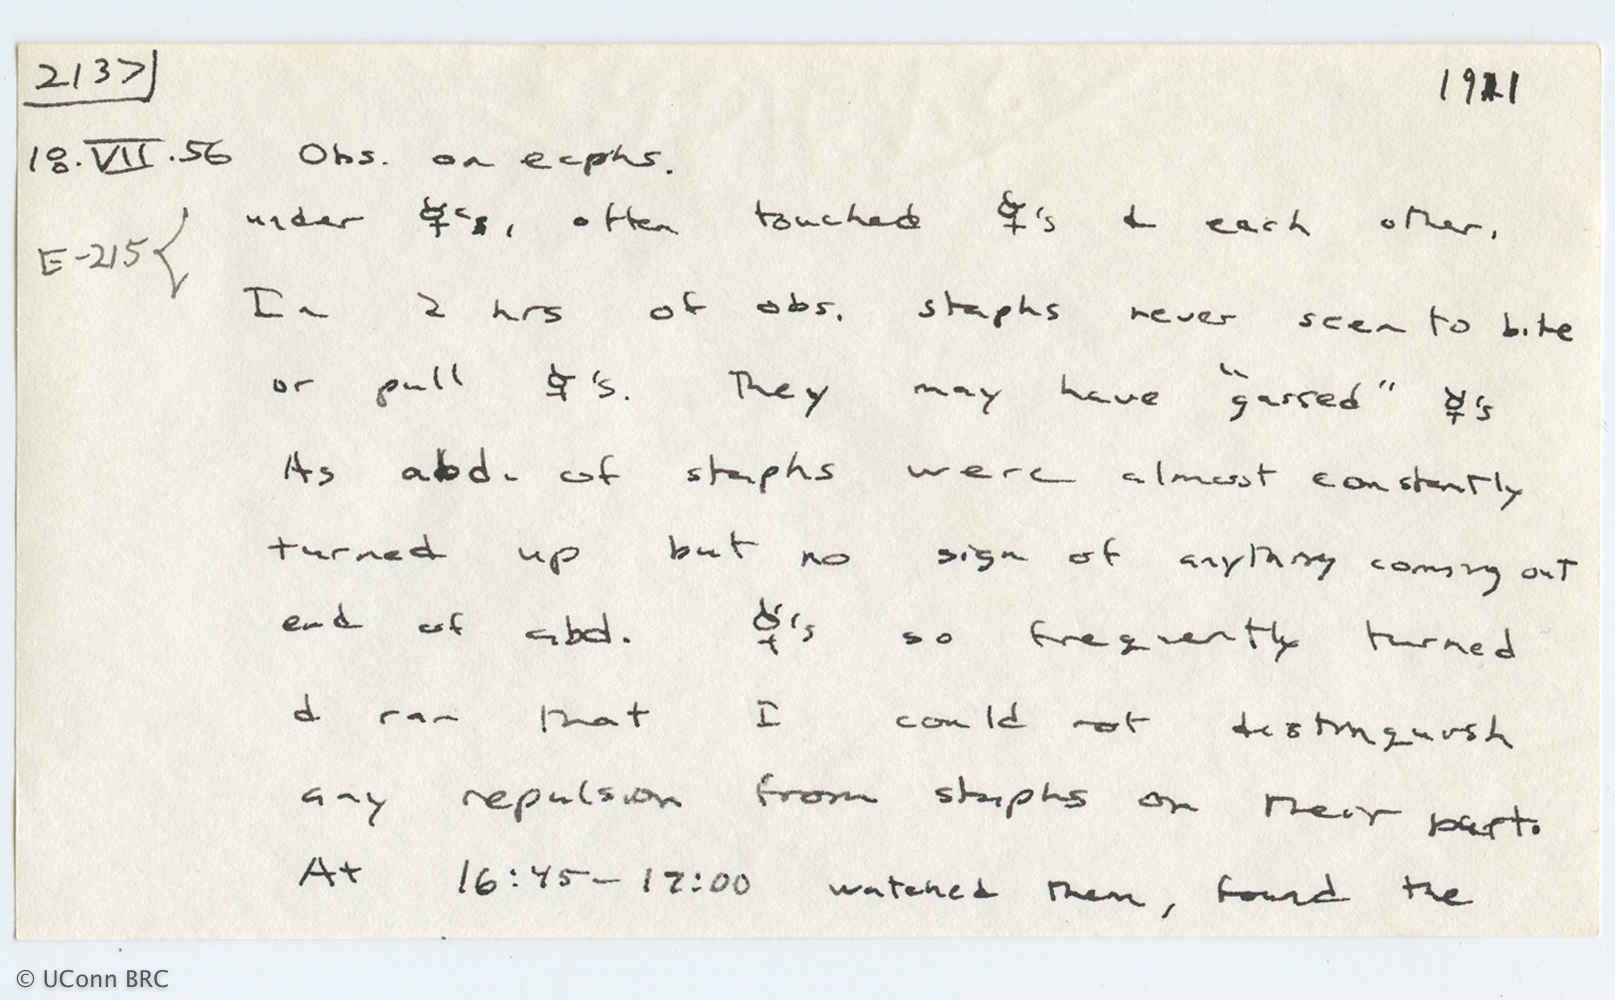 2137
1911
18.VII.56 Obs. on ecphs.
E-215
under ☿'s, often touched ☿'s & each other.
In 2 hrs of obs. staphs never seen to bite
or pull ☿'s. They may have "gassed" ☿'s
As abd. of staphs were almost constantly
turned up but no sign of anything coming out
end of abd. ☿'s so frequently turned
& ran that I could not distinguish
any repulsion from staphs on their part.
At 16:45-17:00 watched them, found the
© UConn BRC